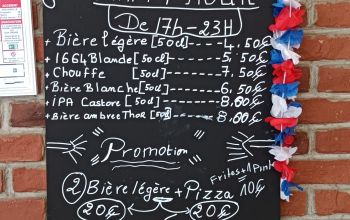 De 17h-23H
+ Bière légère [50cl] ---- 4,50€
+ 1664 Blonde [50cl] ---- 5,50€
+ Chouffe [50cl] ---- 7,50€
+ Bière Blanche [50cl] ---- 6,50€
+ IPA Castore [50cl] ---- 8,00€
+ Bière ambree Thor [50cl] ---- 8,00€
Promotion
Frites + 1 Pinte
10€
② Bière légère + Pizza
20€ 20€